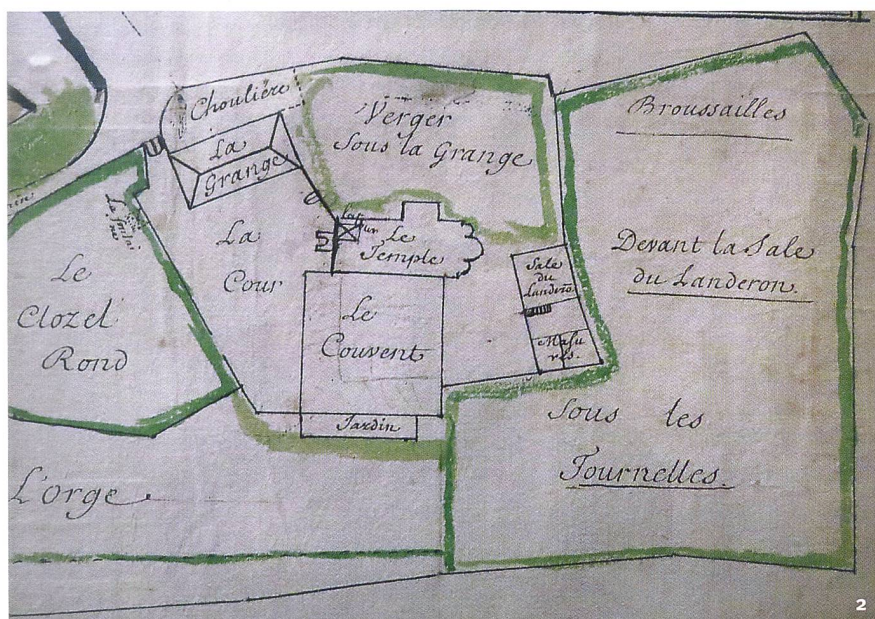 Choulière
La
Grange
Verger
Sous la Grange
Broussailles
La
Cour
la
Le
Temple
Sale
du
Landero.
Masu
res.
Devant la Sale
du Landeron.
Le
Clozel
Rond
Le
Couvent
Jardin
Sous les
Tournelles.
L'orge
2